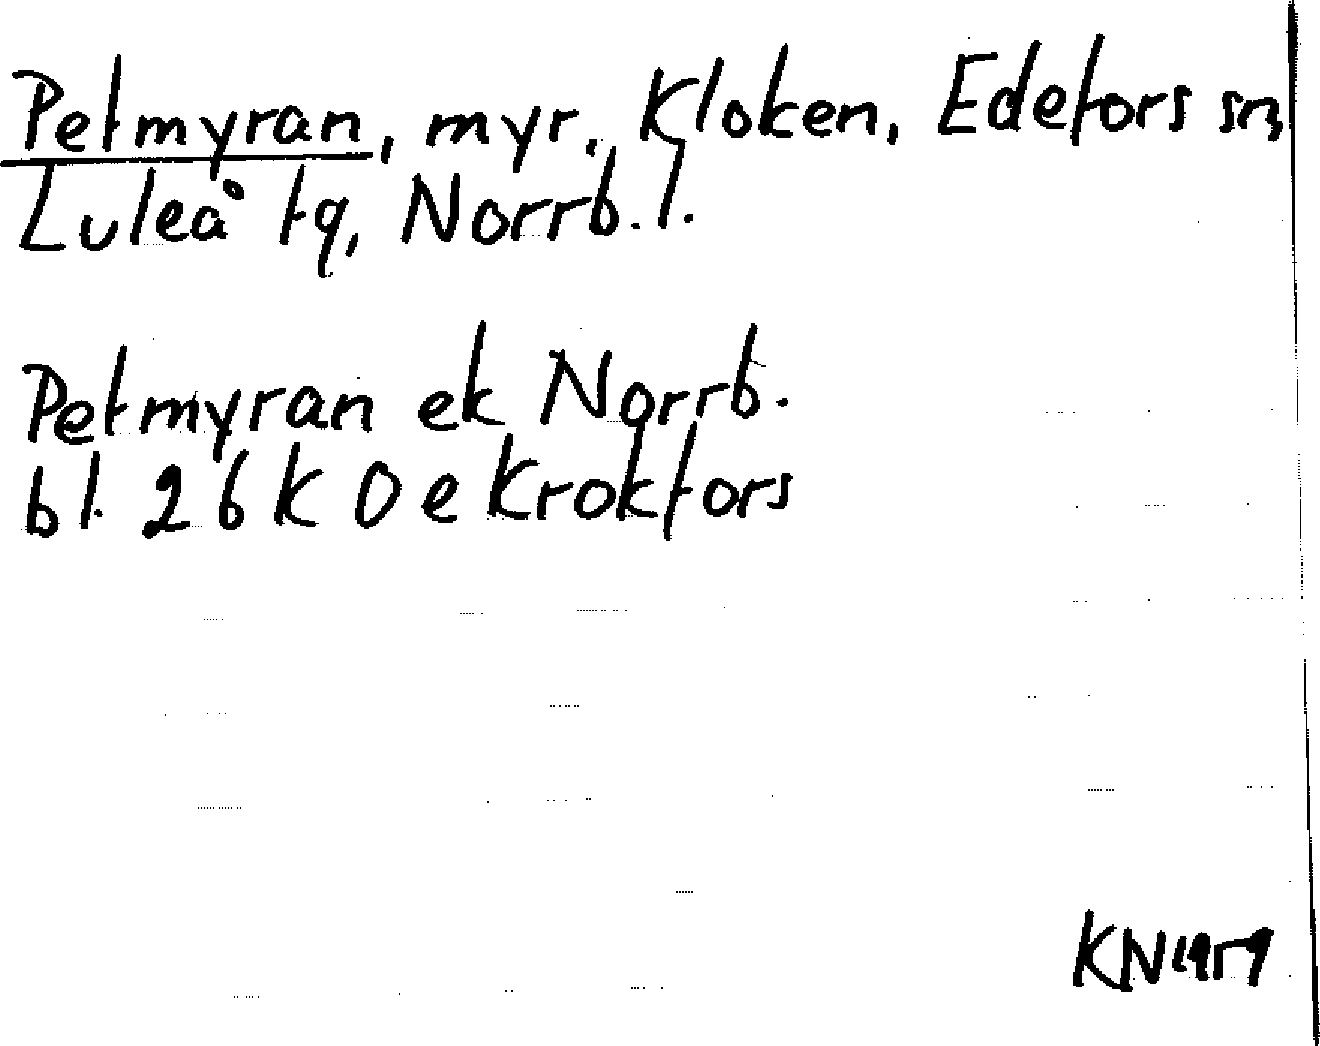 Petmyran, myr, Kloken, Edefors sn,
Luleå tg, Norrb. l.
Petmyran ek Norrb.
bl. 26 K 0 e Krokfors
KN 1959